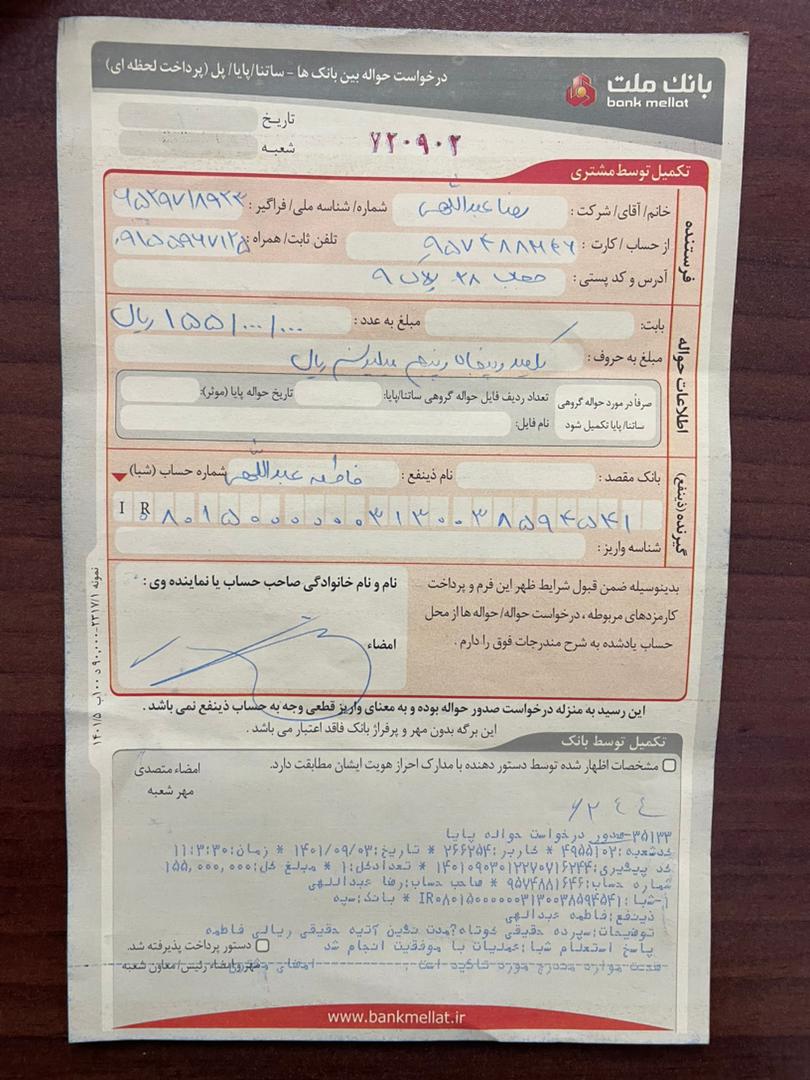 بانک ملت
bank mellat
درخواست حواله بین بانک ها - ساتنا/پایا/پل (پرداخت لحظه ای)
تاریخ
شعبه
۷۲۰۹۰۲
تکمیل توسط مشتری
فرستنده
خانم/آقای/شرکت: رضا عبداللهی شماره/شناسه ملی/فراگیر:
از حساب/کارت: تلفن ثابت/همراه:
آدرس و کد پستی: ۲۸ پلاک ۹
اطلاعات حواله
بابت: مبلغ به عدد: ۱۵۵/۰۰۰/۰۰۰ ریال
مبلغ به حروف: یکصد و پنجاه و پنج میلیون ریال
صرفاً در مورد حواله گروهی ساتنا/پایا تکمیل شود
تعداد ردیف فایل حواله گروهی ساتنا/پایا: تاریخ حواله پایا (موثر):
نام فایل:
گیرنده (ذینفع)
بانک مقصد: نام ذینفع: فاطمه عبداللهی شماره حساب (شبا)
IR ۰۸۰۱۵۰۰۰۰۰۰۰۳۱۳۰۰۳۸۵۹۴۵۴۱
شناسه واریز:
بدینوسیله ضمن قبول شرایط ظهر این فرم و پرداخت
کارمزدهای مربوطه، درخواست حواله/حواله ها از محل
حساب یادشده به شرح مندرجات فوق را دارم.
نام و نام خانوادگی صاحب حساب یا نماینده وی:
امضاء
این رسید به منزله درخواست صدور حواله بوده و به معنای واریز قطعی وجه به حساب ذینفع نمی باشد.
این برگه بدون مهر و پرفراژ بانک فاقد اعتبار می باشد.
تکمیل توسط بانک
مشخصات اظهار شده توسط دستور دهنده با مدارک احراز هویت ایشان مطابقت دارد.
امضاء متصدی
مهر شعبه
۳۵۱۳۳-صدور درخواست حواله پایا
کدشعبه:۴۹۵۵۱۰۲ * کاربر:۲۶۶۲۵۴ * تاریخ:۱۴۰۱/۰۹/۰۳ * زمان:۱۱:۳:۳۰
کد پیگیری:۱۴۰۱۰۹۰۳۰۱۲۲۷۰۷۱۶۲۴۴ * تعدادکل:۱ * مبلغ کل:۱۵۵,۰۰۰,۰۰۰
شماره حساب:۹۵۷۴۸۸۱۶۴۶ * صاحب حساب:رضا عبداللهی
۱-شبا:IR۰۸۰۱۵۰۰۰۰۰۰۰۳۱۳۰۰۳۸۵۹۴۵۴۱ * بانک:سپه
ذینفع:فاطمه عبدالهی
توضیحات:سپرده حقیقی کوتاه؟مدت نگین آتیه حقیقی ریالی فاطمه
پاسخ استعلام شبا:عملیات با موفقیت انجام شد
دستور پرداخت پذیرفته شد.
صحت موارد مندرج مورد تائید است. امضای مشتری
مهر و امضاء رئیس/معاون شعبه
www.bankmellat.ir